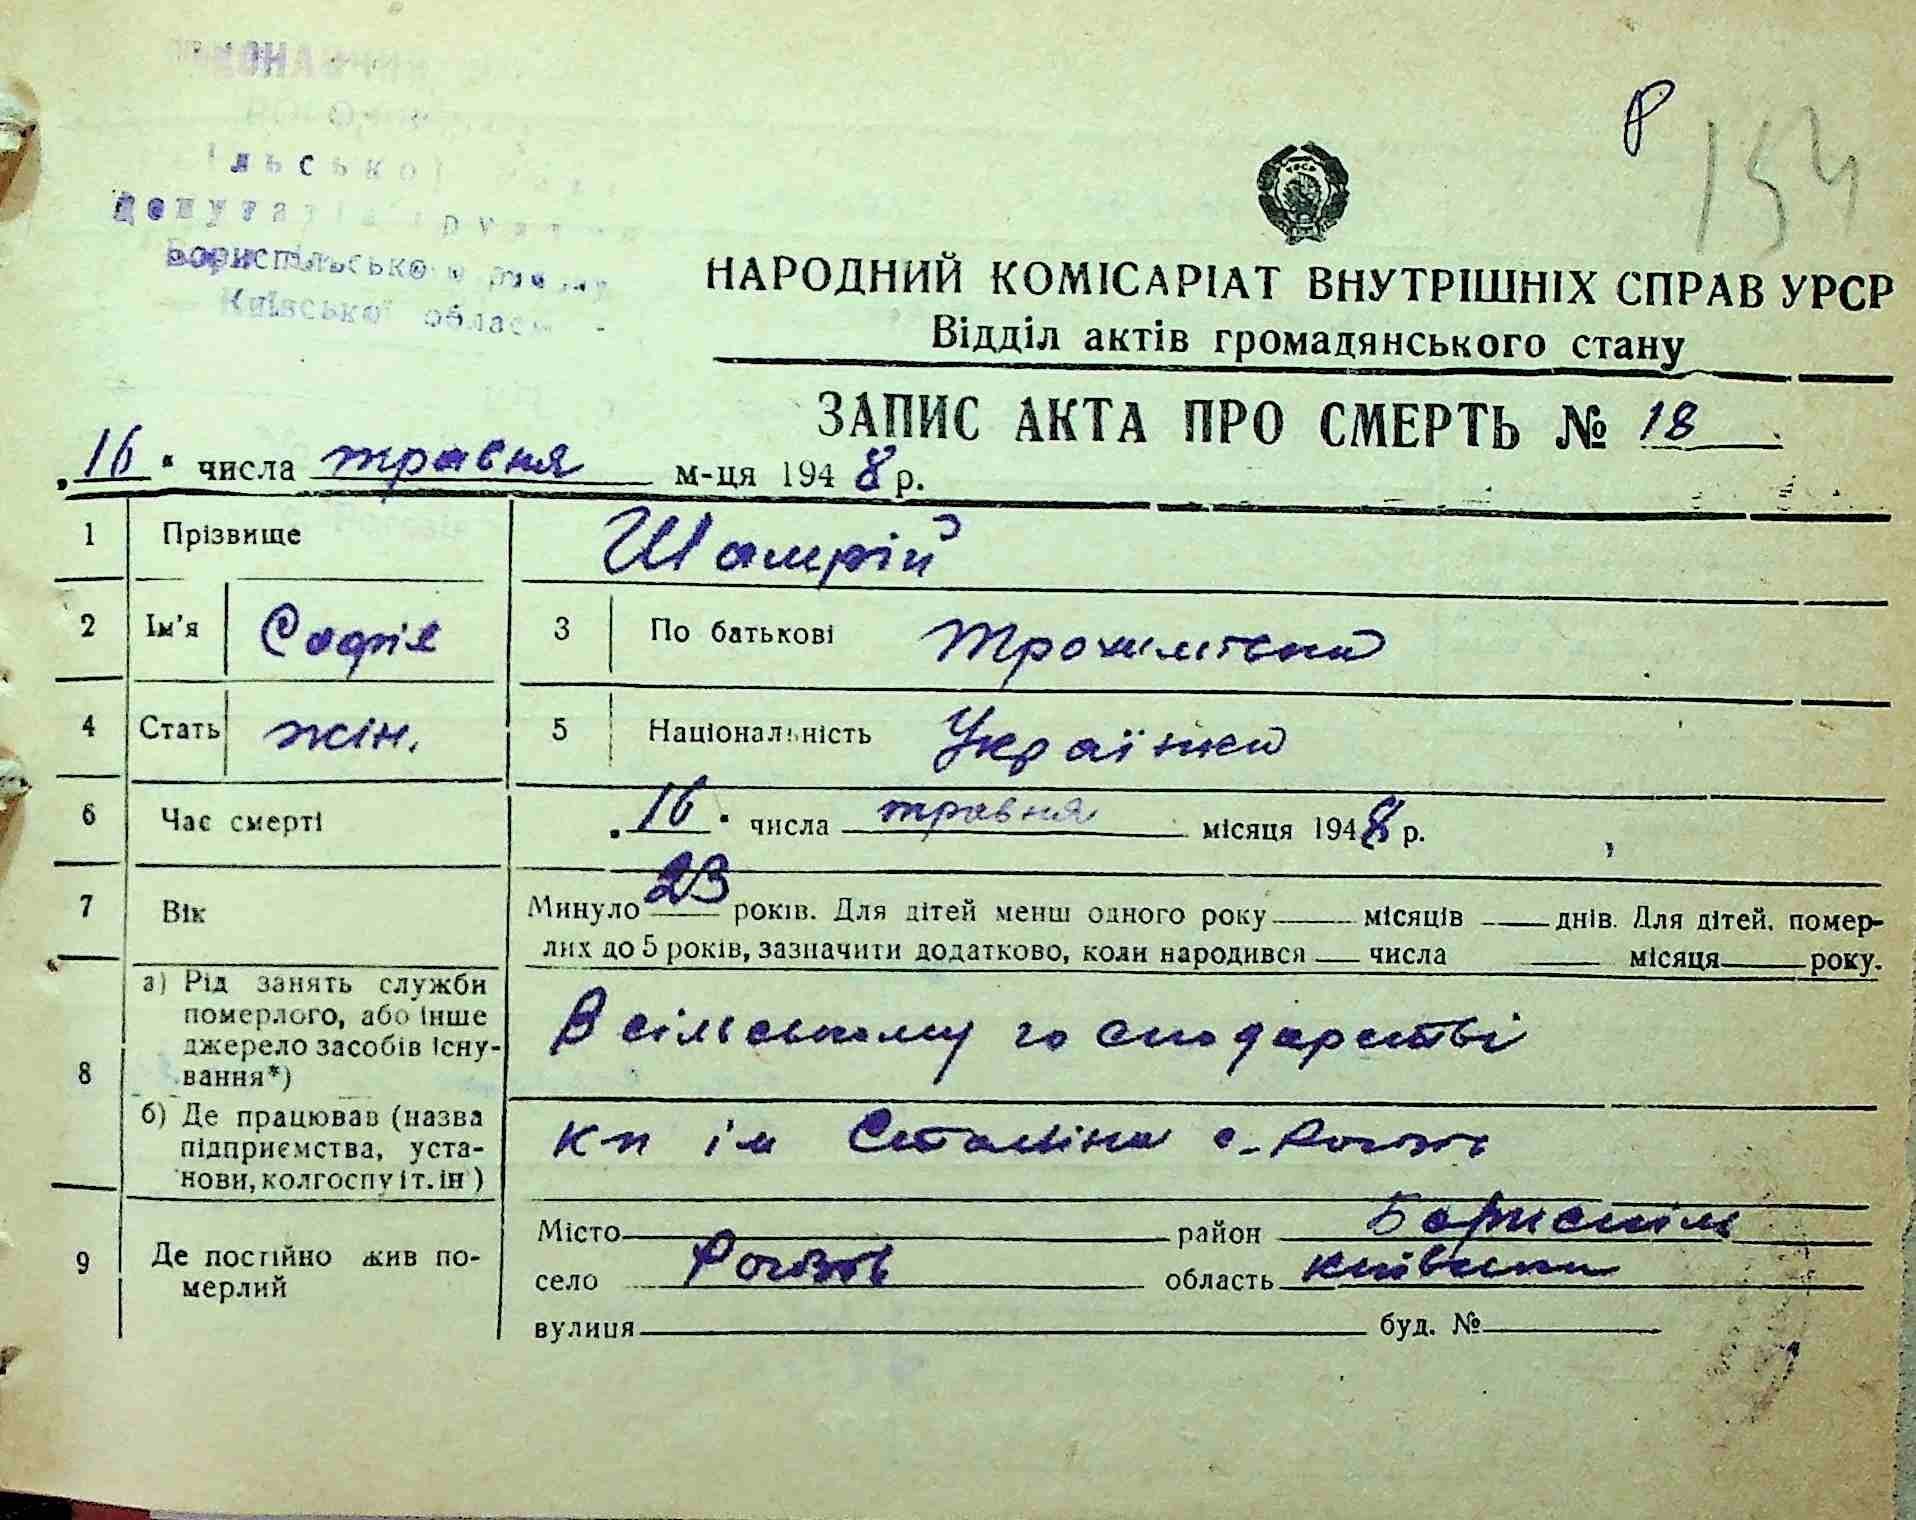 ільської
депутатів
Бориспільського району
Київської області
Р
154
УРСР
НАРОДНИЙ КОМІСАРІАТ ВНУТРІШНІХ СПРАВ УРСР
Відділ актів громадянського стану
ЗАПИС АКТА ПРО СМЕРТЬ № 18
„16“ числа травня м-ця 1948 р.
1 Прізвище Шамрій
2 Ім'я Софія 3 По батькові Трохимівна
4 Стать жін. 5 Національність Українка
6 Час смерті „16“ числа травня місяця 1948 р.
7 Вік Минуло 23 років. Для дітей менш одного року місяців днів. Для дітей, помер-
лих до 5 років, зазначити додатково, коли народився числа місяця року.
8 а) Рід занять служби
померлого, або інше
джерело засобів існу-
вання*) В сільському господарстві
б) Де працював (назва
підприємства, уста-
нови, колгоспу і т. ін) кп ім Сталіна с. Рогозів
9 Де постійно жив по-
мерлий
Місто район Бориспіль
село Рогозів область Київська
вулиця буд. №